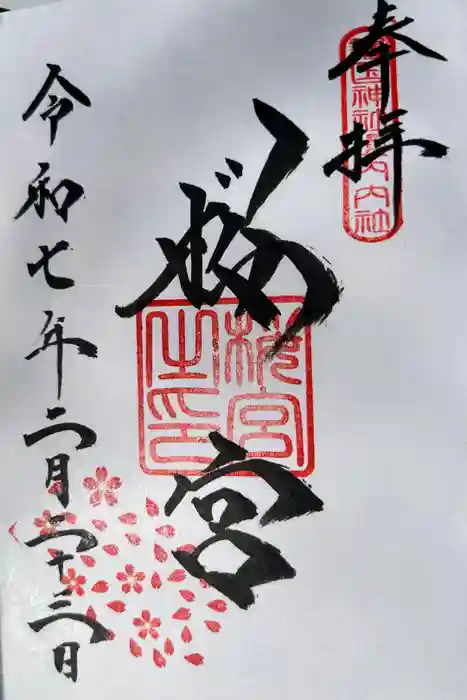 奉拝
国神社
内社
桜宮
桜宮
之印
令和七年二月二十三日